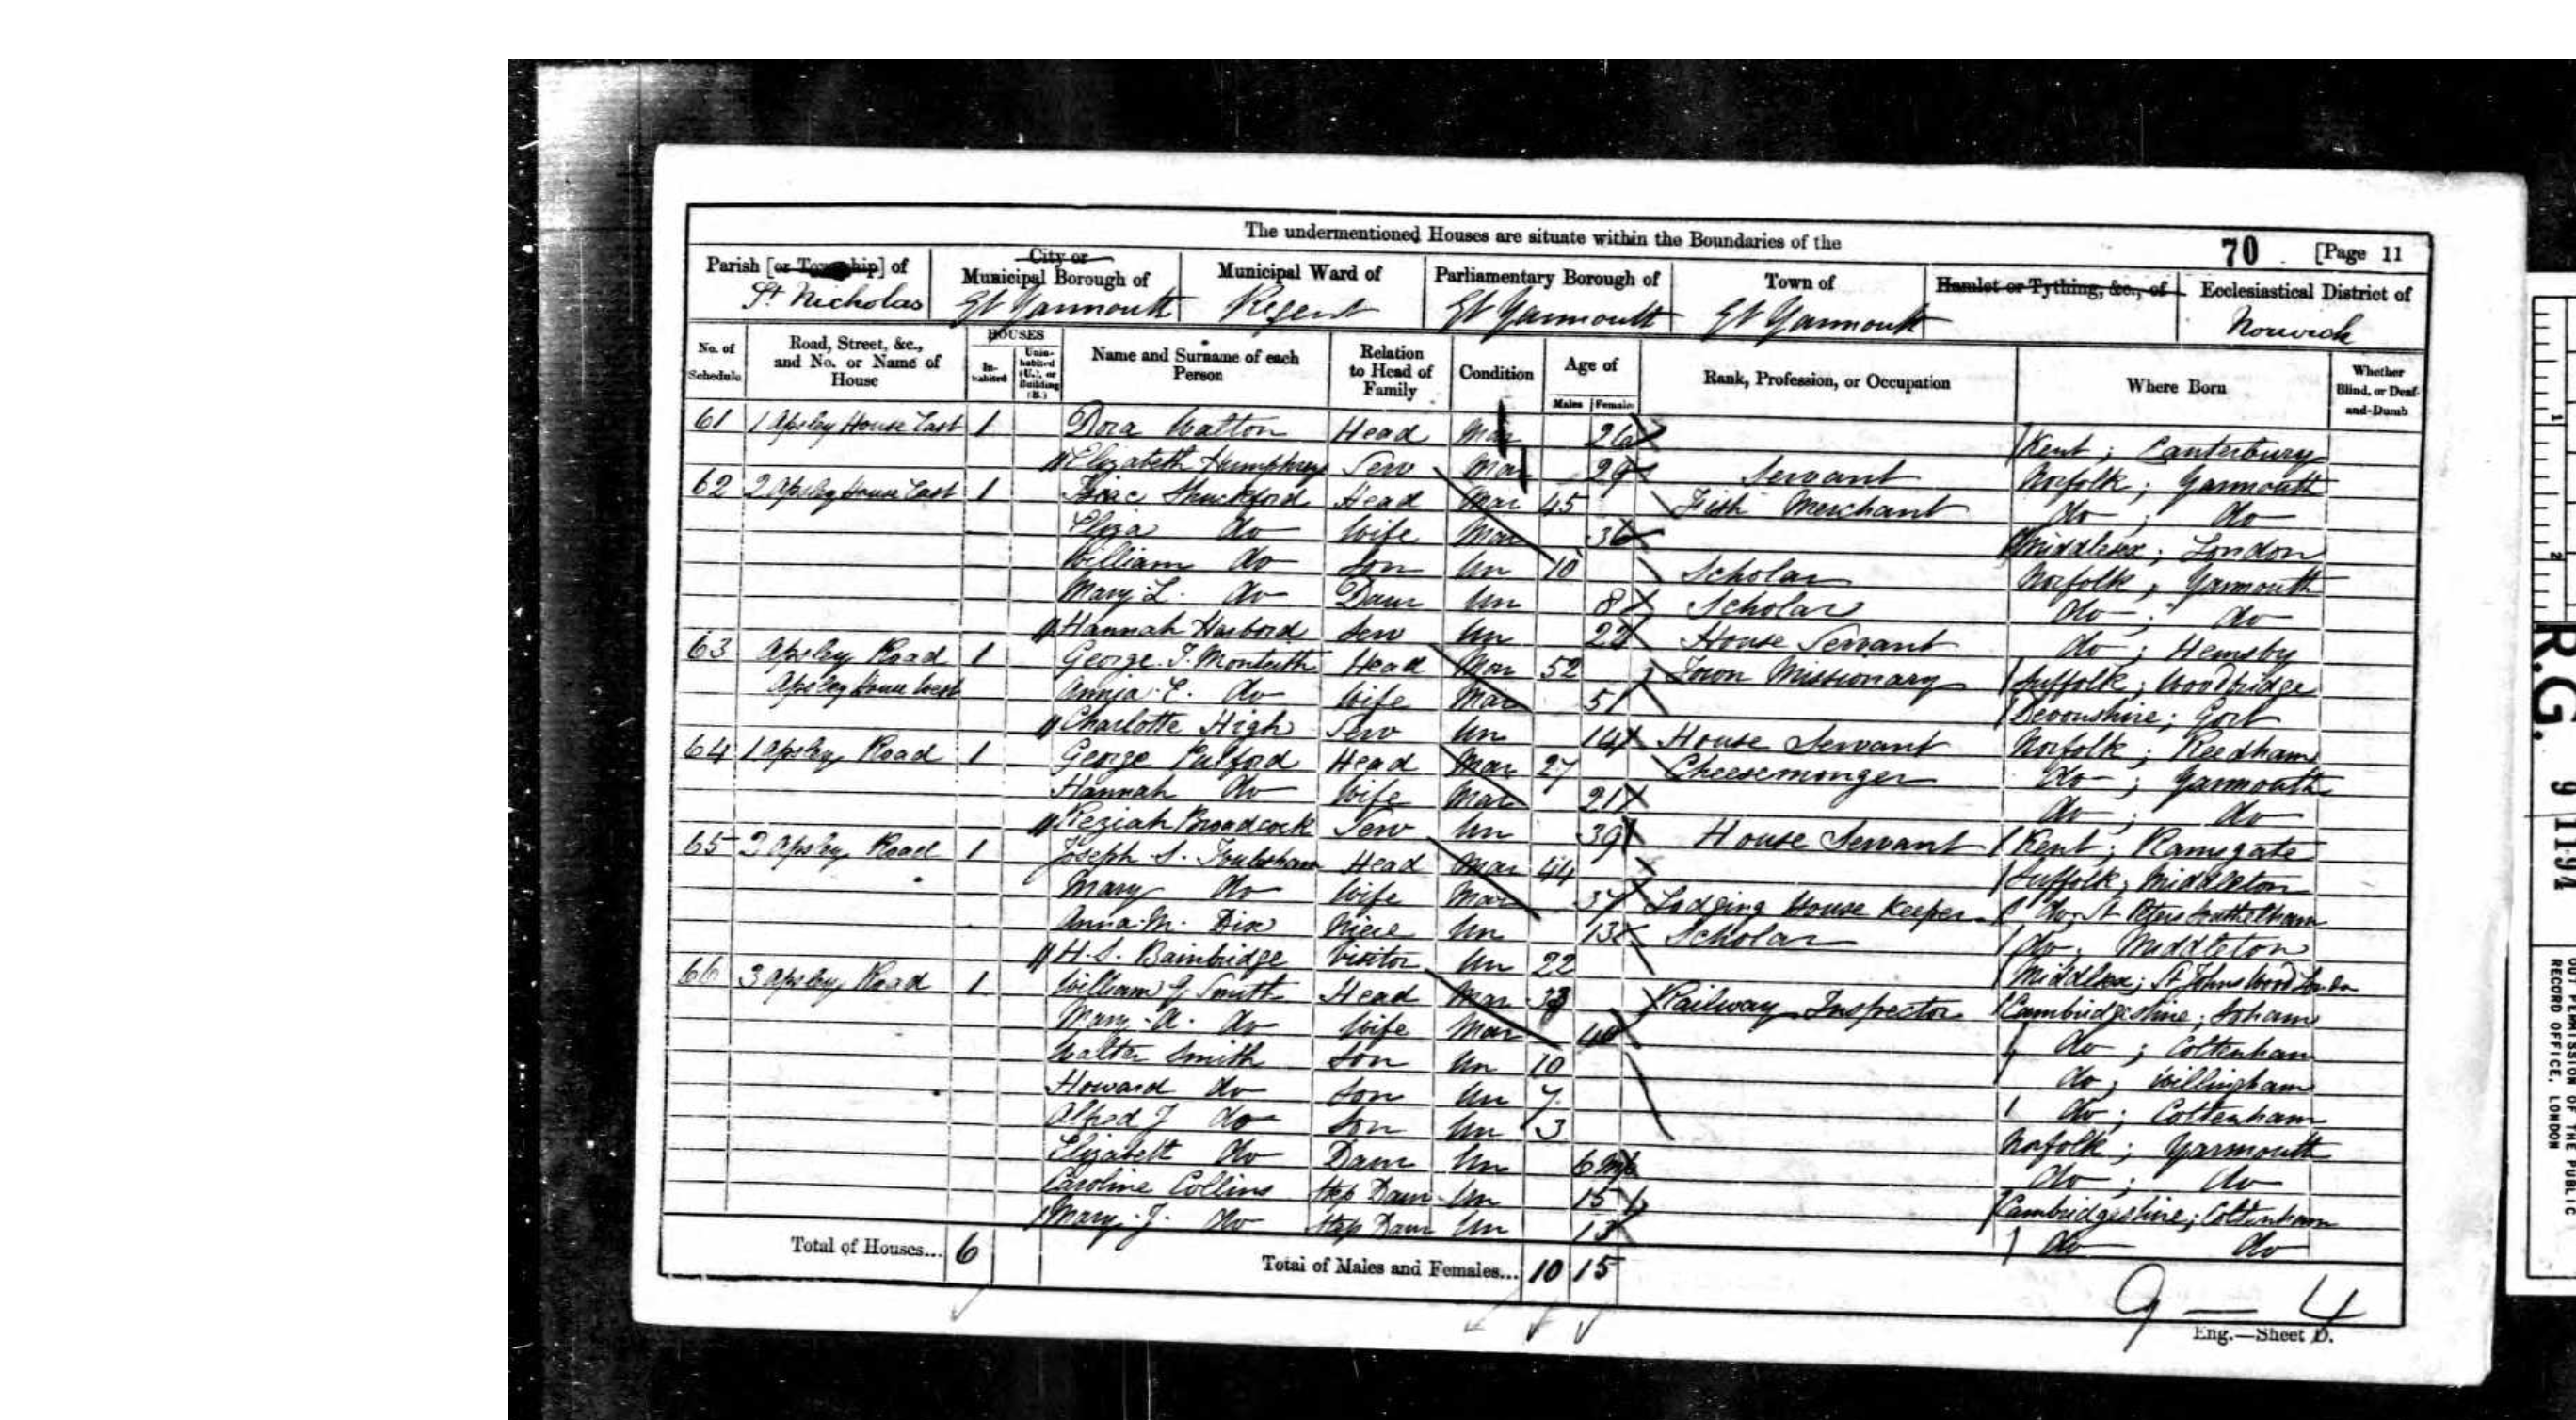 The undermentioned Houses are situate within the Boundaries of the
70 [Page 11
Parish [or Township] of St Nicholas
City or Municipal Borough of Gt Yarmouth
Municipal Ward of Regent
Parliamentary Borough of Gt Yarmouth
Town of Gt Yarmouth
Hamlet or Tything, &c., of
Ecclesiastical District of Norwich
No. of Schedule
Road, Street, &c., and No. or Name of House
HOUSES
In-habited
Unin-habited (U.), or Building (B.)
Name and Surname of each Person
Relation to Head of Family
Condition
Age of
Males Females
Rank, Profession, or Occupation
Where Born
Whether Blind, or Deaf-and-Dumb
61 1 Apsley House East 1 Dora Watton Head Mar 26 Kent; Canterbury
Elizabeth Humphrey Serv Mar 29 Servant Norfolk; Yarmouth
62 2 Apsley House East 1 Isaac Shuckford Head Mar 45 Fish Merchant do; do
Eliza do Wife Mar 36 Middlesex; London
William do Son Un 10 Scholar Norfolk; Yarmouth
Mary L. do Daur Un 8 Scholar do; do
Hannah Harbord Serv Un 22 House Servant do; Hemsby
63 Apsley Road 1 George T. Monteith Head Mar 52 Town Missionary Suffolk; Woodbridge
Apsley House West E. do Wife Mar 51 Devonshire;
Charlotte High Serv Un 14 House Servant Norfolk; Reedham
64 1 Apsley Road 1 George Pulford Head Mar 27 Cheesemonger do; Yarmouth
Hannah do Wife Mar 21 do; do
Keziah Broadcock Serv Un 39 House Servant Kent; Ramsgate
65 2 Apsley Road 1 Joseph S. Head Mar 44 Suffolk; Middleton
Mary do Wife Mar 37 Lodging House Keeper do; St Peters Southelham
Anna M. Dix Niece Un 13 Scholar do; Middleton
H. S. Bainbridge Visitor Un 22 Middlesex; St Johns Wood London
66 3 Apsley Road 1 William G Smith Head Mar 33 Railway Inspector Cambridgeshire; Soham
Mary A. do Wife Mar 40 do; Cottenham
Walter Smith Son Un 10 do; Willingham
Howard do Son Un 7 do; Cottenham
Alfred J do Son Un 3 Norfolk; Yarmouth
Elizabeth do Daur Un 6 do; do
Caroline Collins Step Daur Un 15 Cambridgeshire; Cottenham
Mary J. do Step Daur Un 13 do do
Total of Houses... 6
Total of Males and Females... 10 15
9 — 4
Eng.—Sheet D.
1
2
R.G. 9 1194
OUT PERMISSION OF THE PUBLIC
RECORD OFFICE, LONDON